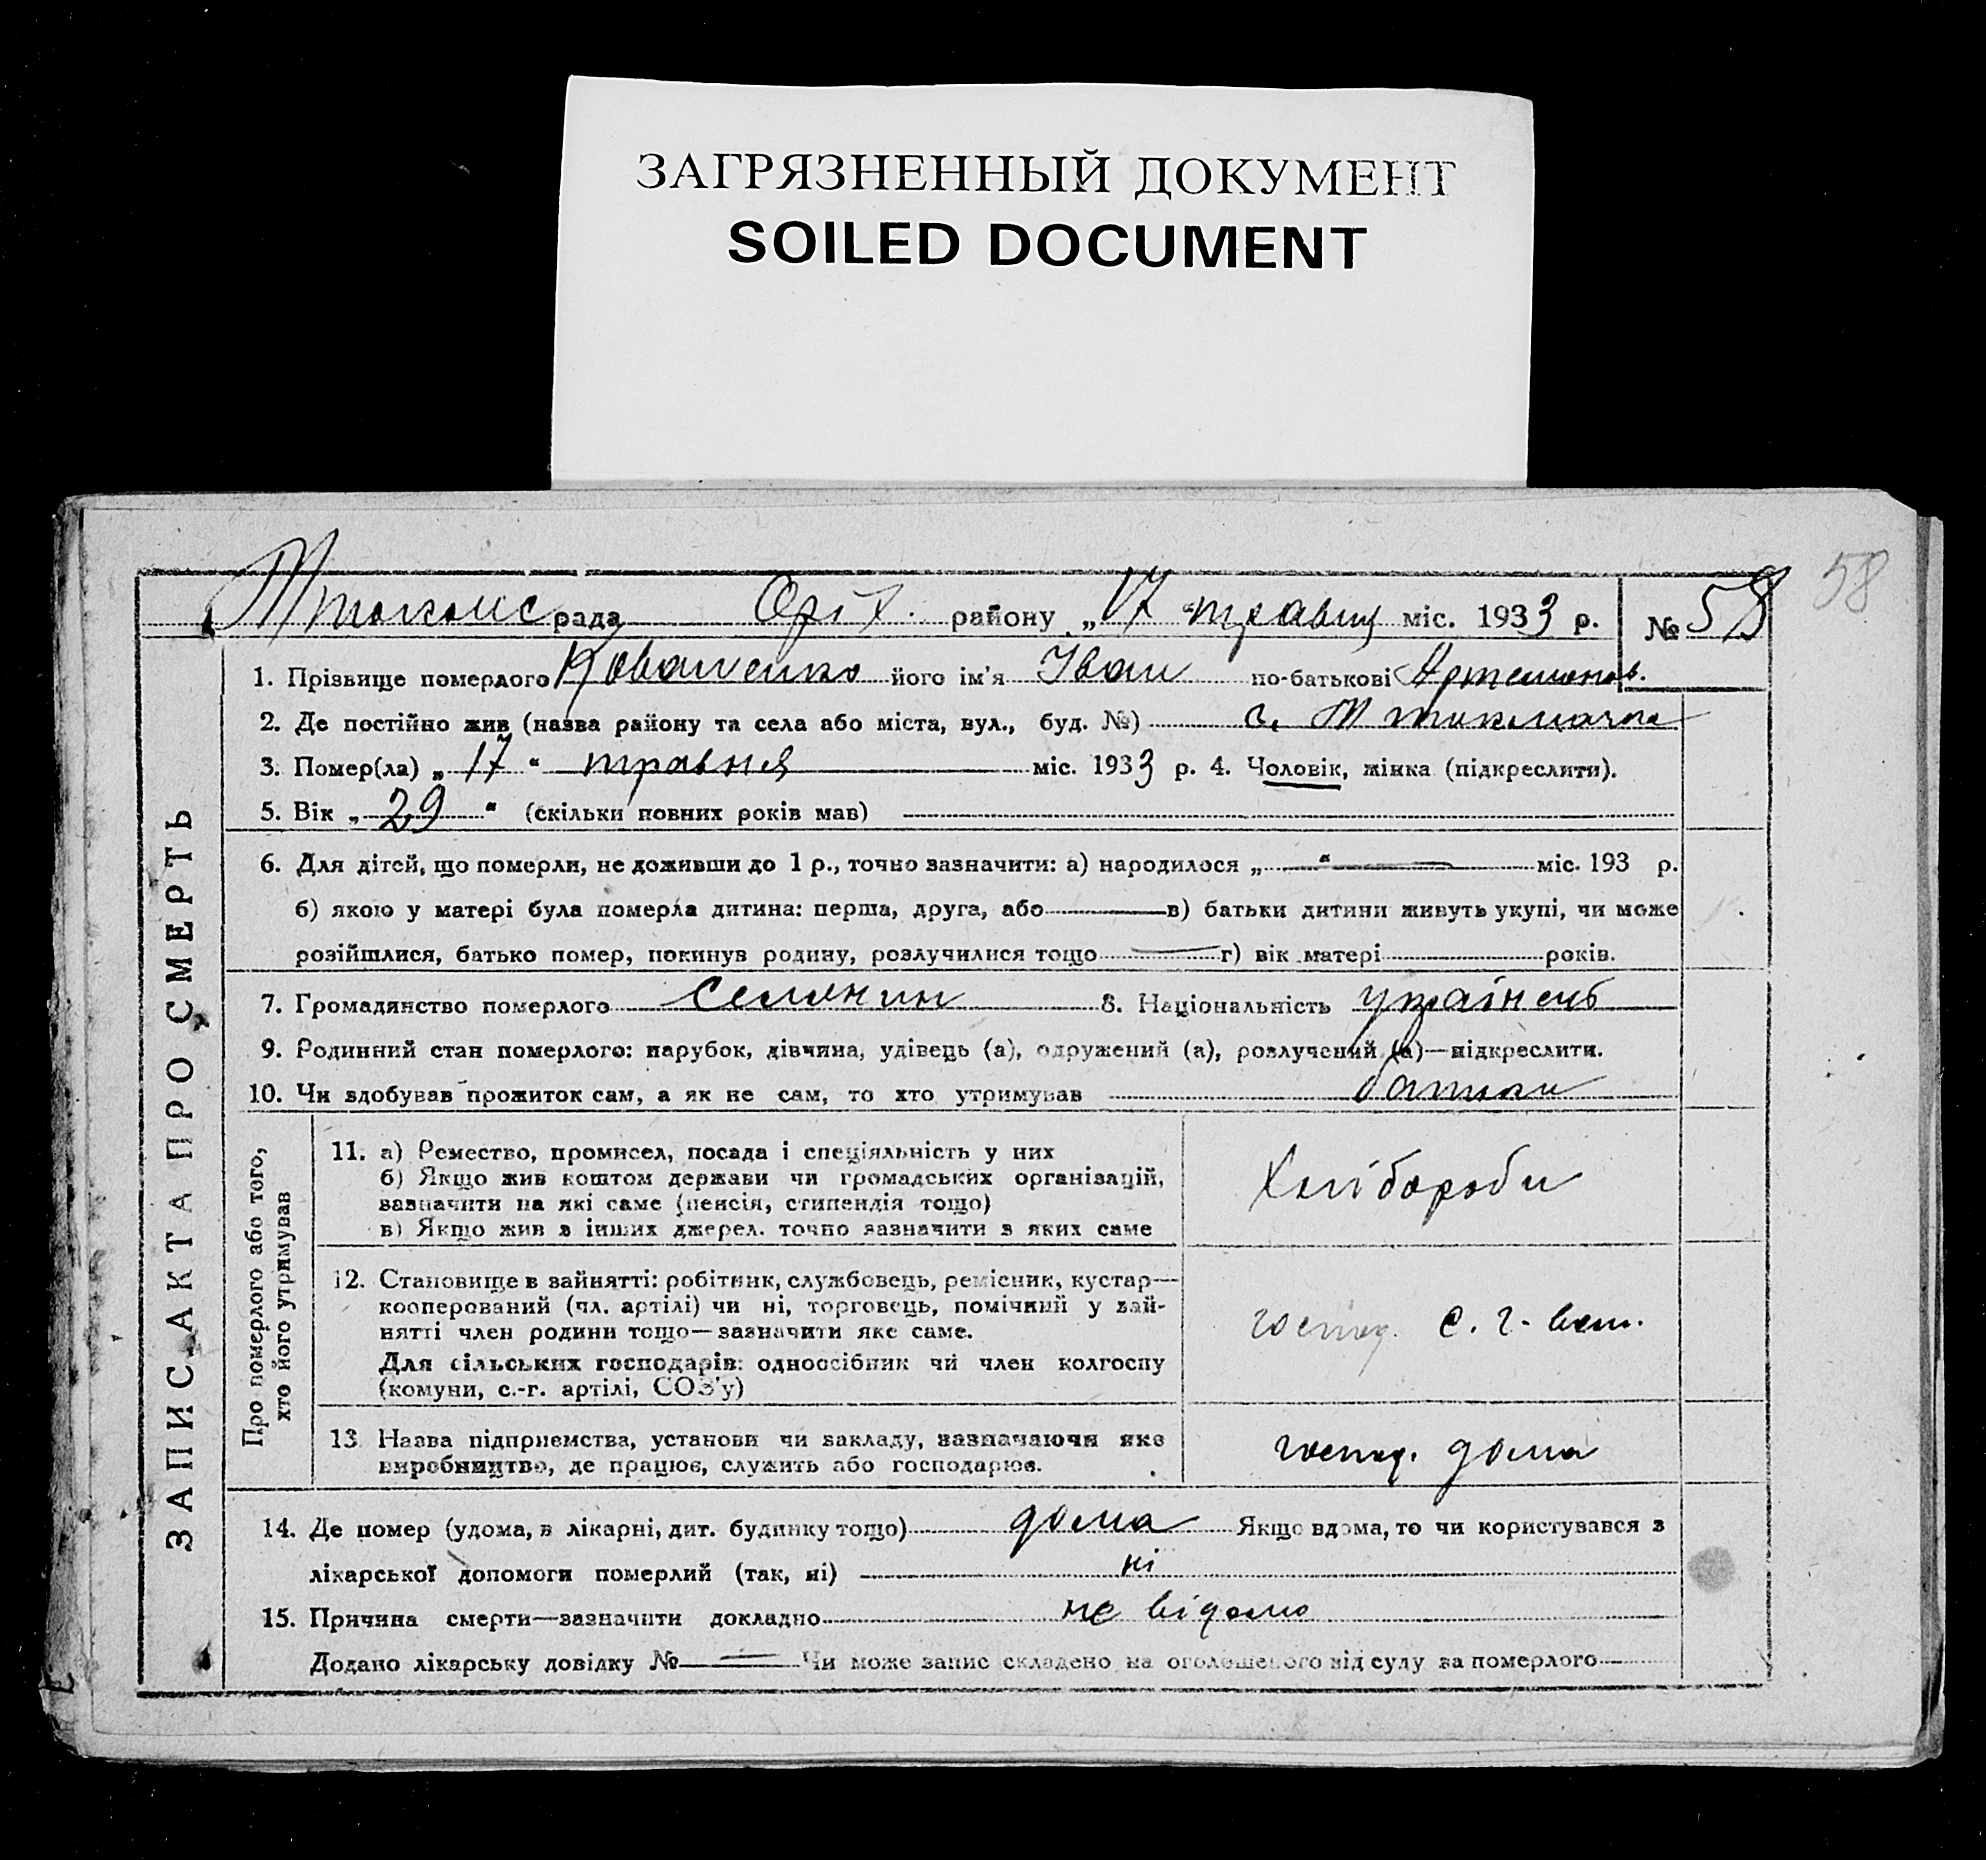 ЗАГРЯЗНЕННЫЙ ДОКУМЕНТ
SOILED DOCUMENT
58
рада Оріх. району „17“ травня міс. 1933 р. № 58
1. Прізвище померлого Коваленко його ім'я Іван по-батькові Артемонов.
2. Де постійно жив (назва району та села або міста, вул., буд. №) с.
3. Помер(ла) „17“ травня міс. 1933 р. 4. Чоловік, жінка (підкреслити).
5. Вік „29“ (скільки повних років мав)
6. Для дітей, що померли, не доживши до 1 р., точно зазначити: а) народилося „ “ міс. 193 р.
б) якою у матері була померла дитина: перша, друга, або в) батьки дитини живуть укупі, чи може
розійшлися, батько помер, покинув родину, розлучилися тощо г) вік матері років.
7. Громадянство померлого селянин 8. Національність українець
9. Родинний стан померлого: парубок, дівчина, удівець (а), одружений (а), розлучений (а)—підкреслити.
10. Чи здобував прожиток сам, а як не сам, то хто утримував батьки
ЗАПИС АКТА ПРО СМЕРТЬ
Про померлого або того,
хто його утримував
11. а) Ремество, промисел, посада і спеціяльність у них
б) Якщо жив коштом держави чи громадських організацій,
зазначити на які саме (пенсія, стипендія тощо)
в) Якщо жив з інших джерел. точно зазначити з яких саме
Хлібороби
12. Становище в зайнятті: робітник, службовець, ремісник, кустар—
кооперований (чл. артілі) чи ні, торговець, помічний у зай-
нятті член родини тощо—зазначити яке саме.
Для сільських господарів: одноосібник чи член колгоспу
(комуни, с.-г. артілі, СОЗ'у)
с. г.
13. Назва підприємства, установи чи закладу, зазначаючи яке
виробництво, де працює, служить або господарює.
господ. дома
14. Де помер (удома, в лікарні, дит. будинку тощо) дома Якщо вдома, то чи користувався з
лікарської допомоги померлий (так, ні) ні
15. Причина смерти—зазначити докладно не відомо
Додано лікарську довідку № Чи може запис складено на оголошеного від суду за померлого